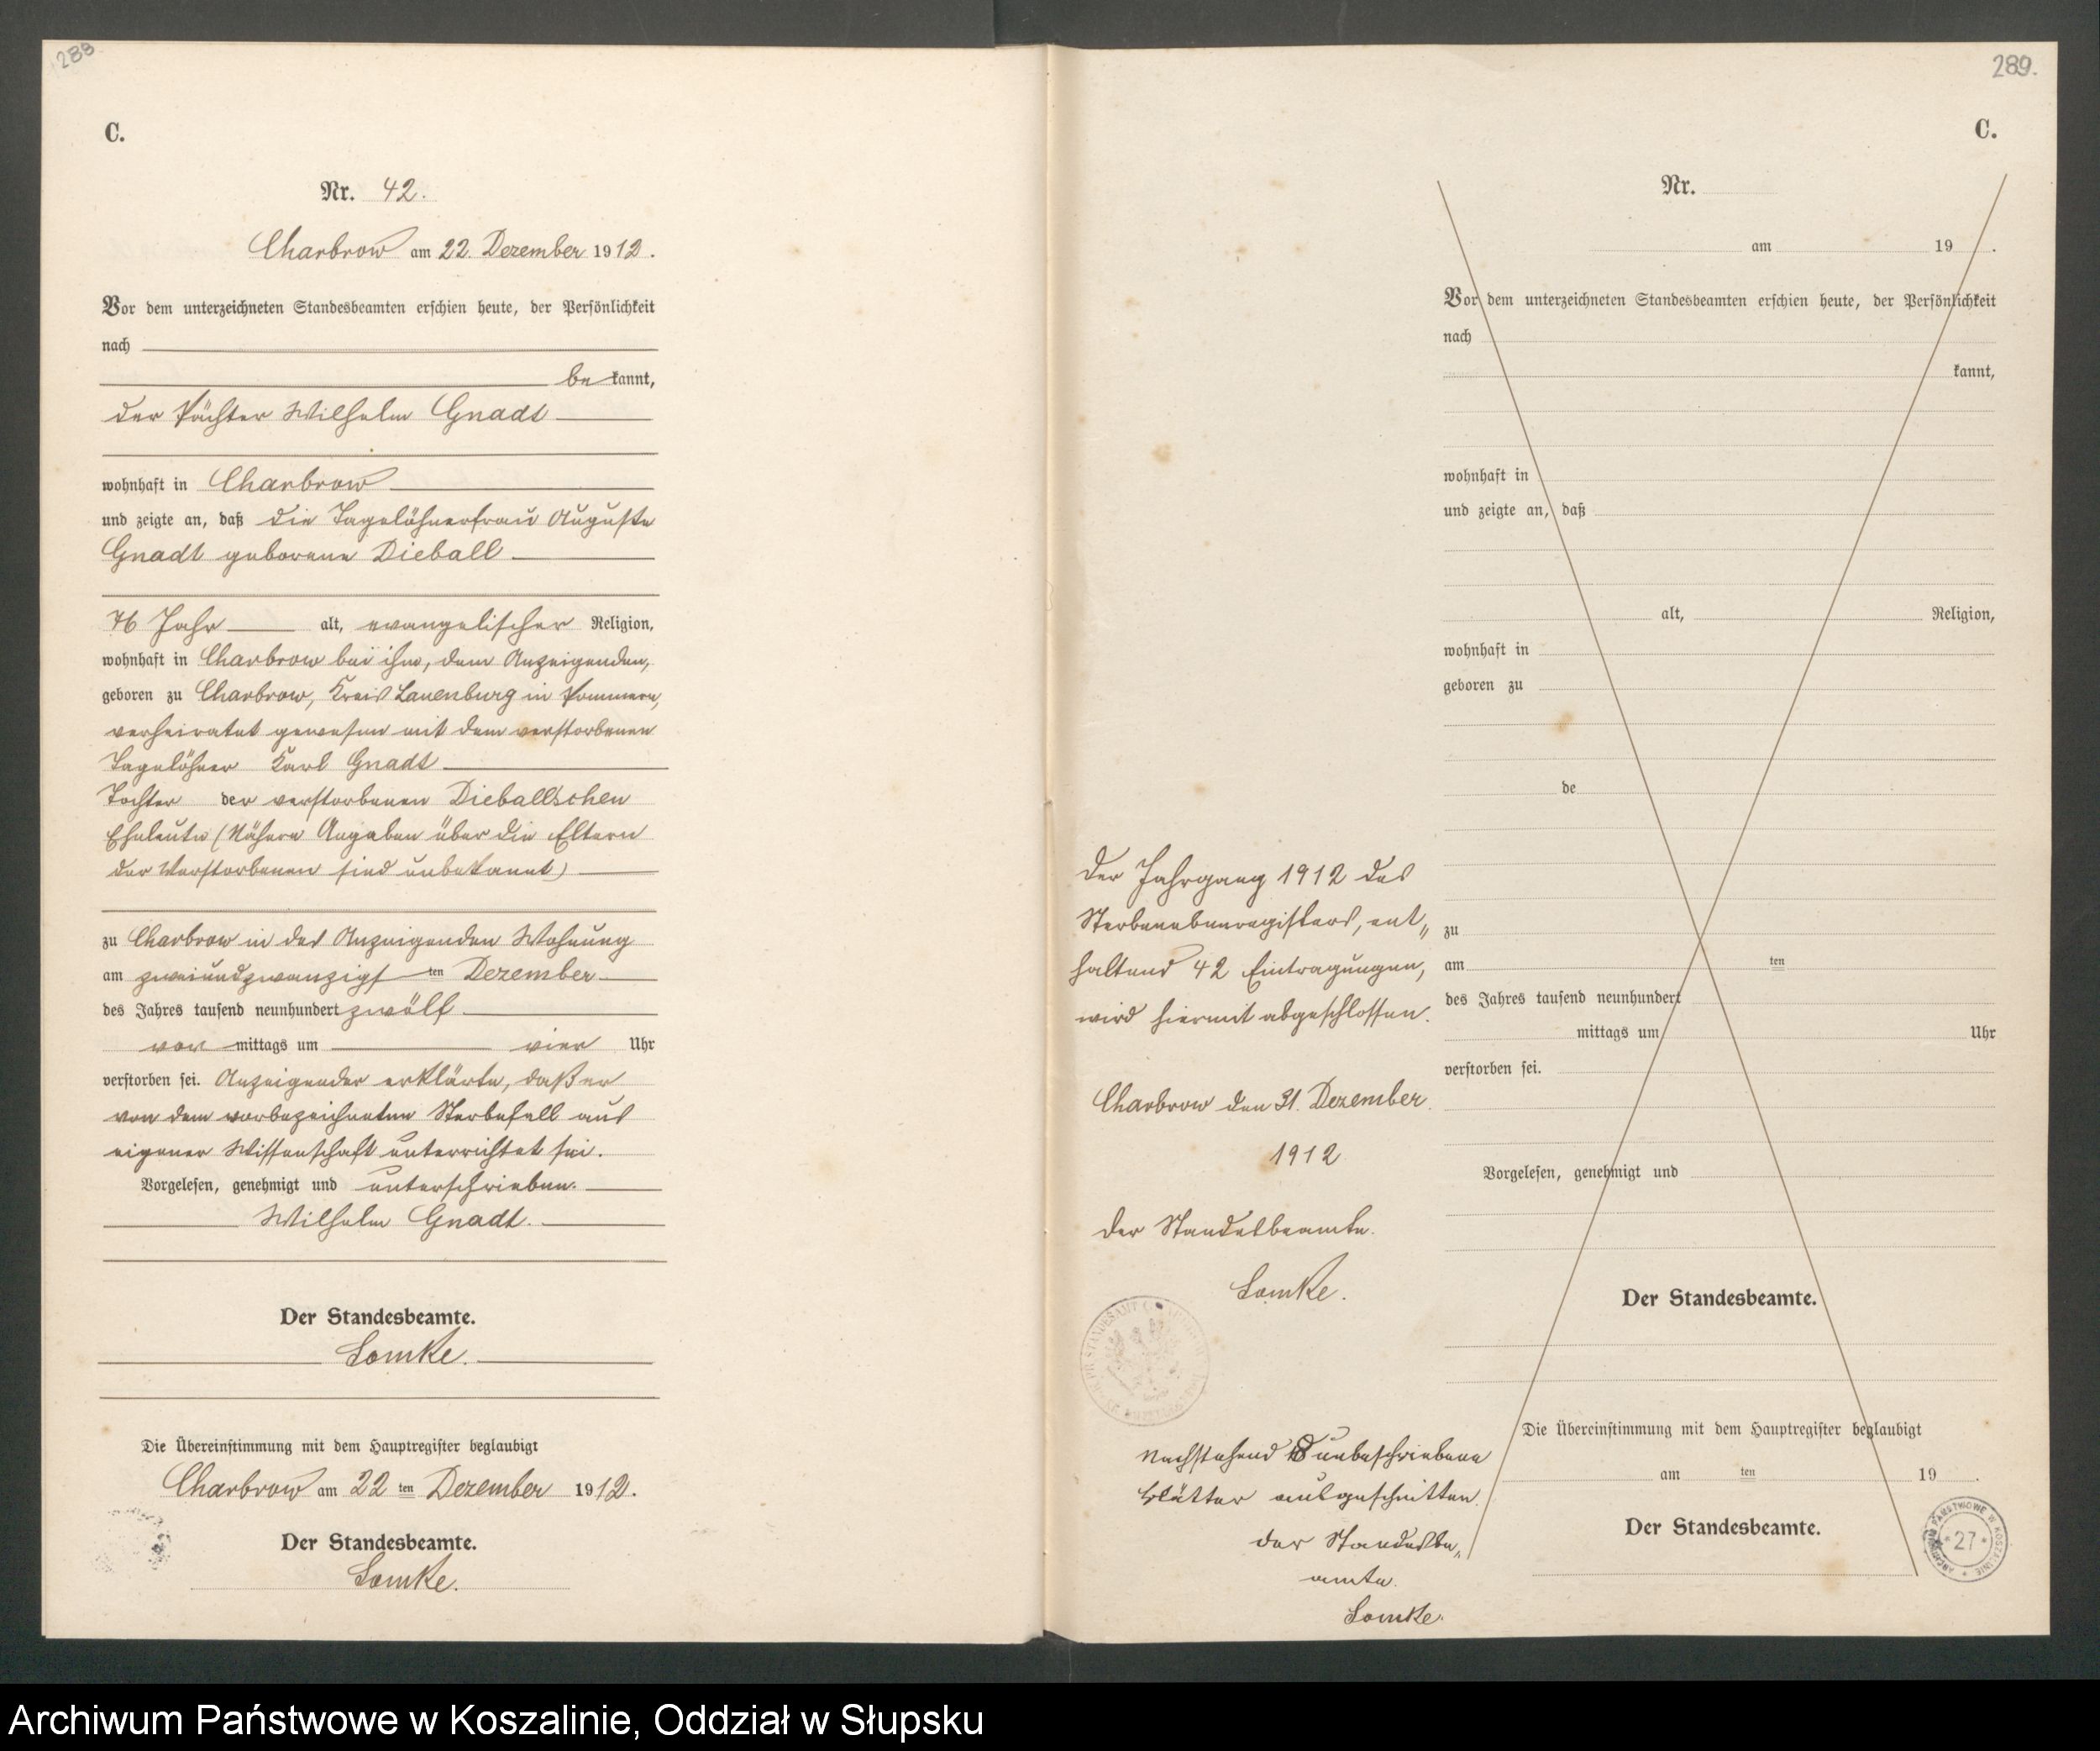 288
C.
Nr. 42.
Charbrow am 22. Dezember 1912.
Vor dem unterzeichneten Standesbeamten erschien heute, der Persönlichkeit
nach
be kannt,
der Pächter Wilhelm Gnadt
wohnhaft in Charbrow
und zeigte an, daß die Tagelöhnerfrau Auguste
Gnadt geborene Dieball
76 Jahr alt, evangelischer Religion,
wohnhaft in Charbrow bei ihm, dem Anzeigenden,
geboren zu Charbrow, Kreis Lauenburg in Pommern,
verheiratet gewesen mit dem verstorbenen
Tagelöhner Karl Gnadt
Tochter der verstorbenen Dieballschen
Eheleute (Nähere Angaben über die Eltern
der Verstorbenen sind unbekannt)
zu Charbrow in des Anzeigenden Wohnung
am zweiundzwanzigsten Dezember
des Jahres tausend neunhundert zwölf
vor mittags um vier Uhr
verstorben sei. Anzeigender erklärte, daß er
von dem vorbezeichneten Sterbefall aus
eigener Wissenschaft unterrichtet sei.
Vorgelesen, genehmigt und unterschrieben.
Wilhelm Gnadt.
Der Standesbeamte.
Lomke.
Die Übereinstimmung mit dem Hauptregister beglaubigt
Charbrow am 22 ten Dezember 1912.
Der Standesbeamte.
Lomke.
289.
C.
Nr.
am 19 .
Vor dem unterzeichneten Standesbeamten erschien heute, der Persönlichkeit
nach
kannt,
wohnhaft in
und zeigte an, daß
alt, Religion,
wohnhaft in
geboren zu
de
zu
am ten
des Jahres tausend neunhundert
mittags um Uhr
verstorben sei.
Vorgelesen, genehmigt und
Der Standesbeamte.
Die Übereinstimmung mit dem Hauptregister beglaubigt
am ten 19 .
Der Standesbeamte.
Der Jahrgang 1912 des
Sterbenebenregisters, ent„
haltend 42 Eintragungen,
wird hiermit abgeschlossen.
Charbrow den 31. Dezember
1912
Der Standesbeamte.
Lomke.
Nachstehend 8 unbeschriebene
Blätter ausgeschnitten.
Der Standesbe„
amte.
Lomke.
ARCHIWUM PAŃSTWOWE W KOSZALINIE
27
Archiwum Państwowe w Koszalinie, Oddział w Słupsku